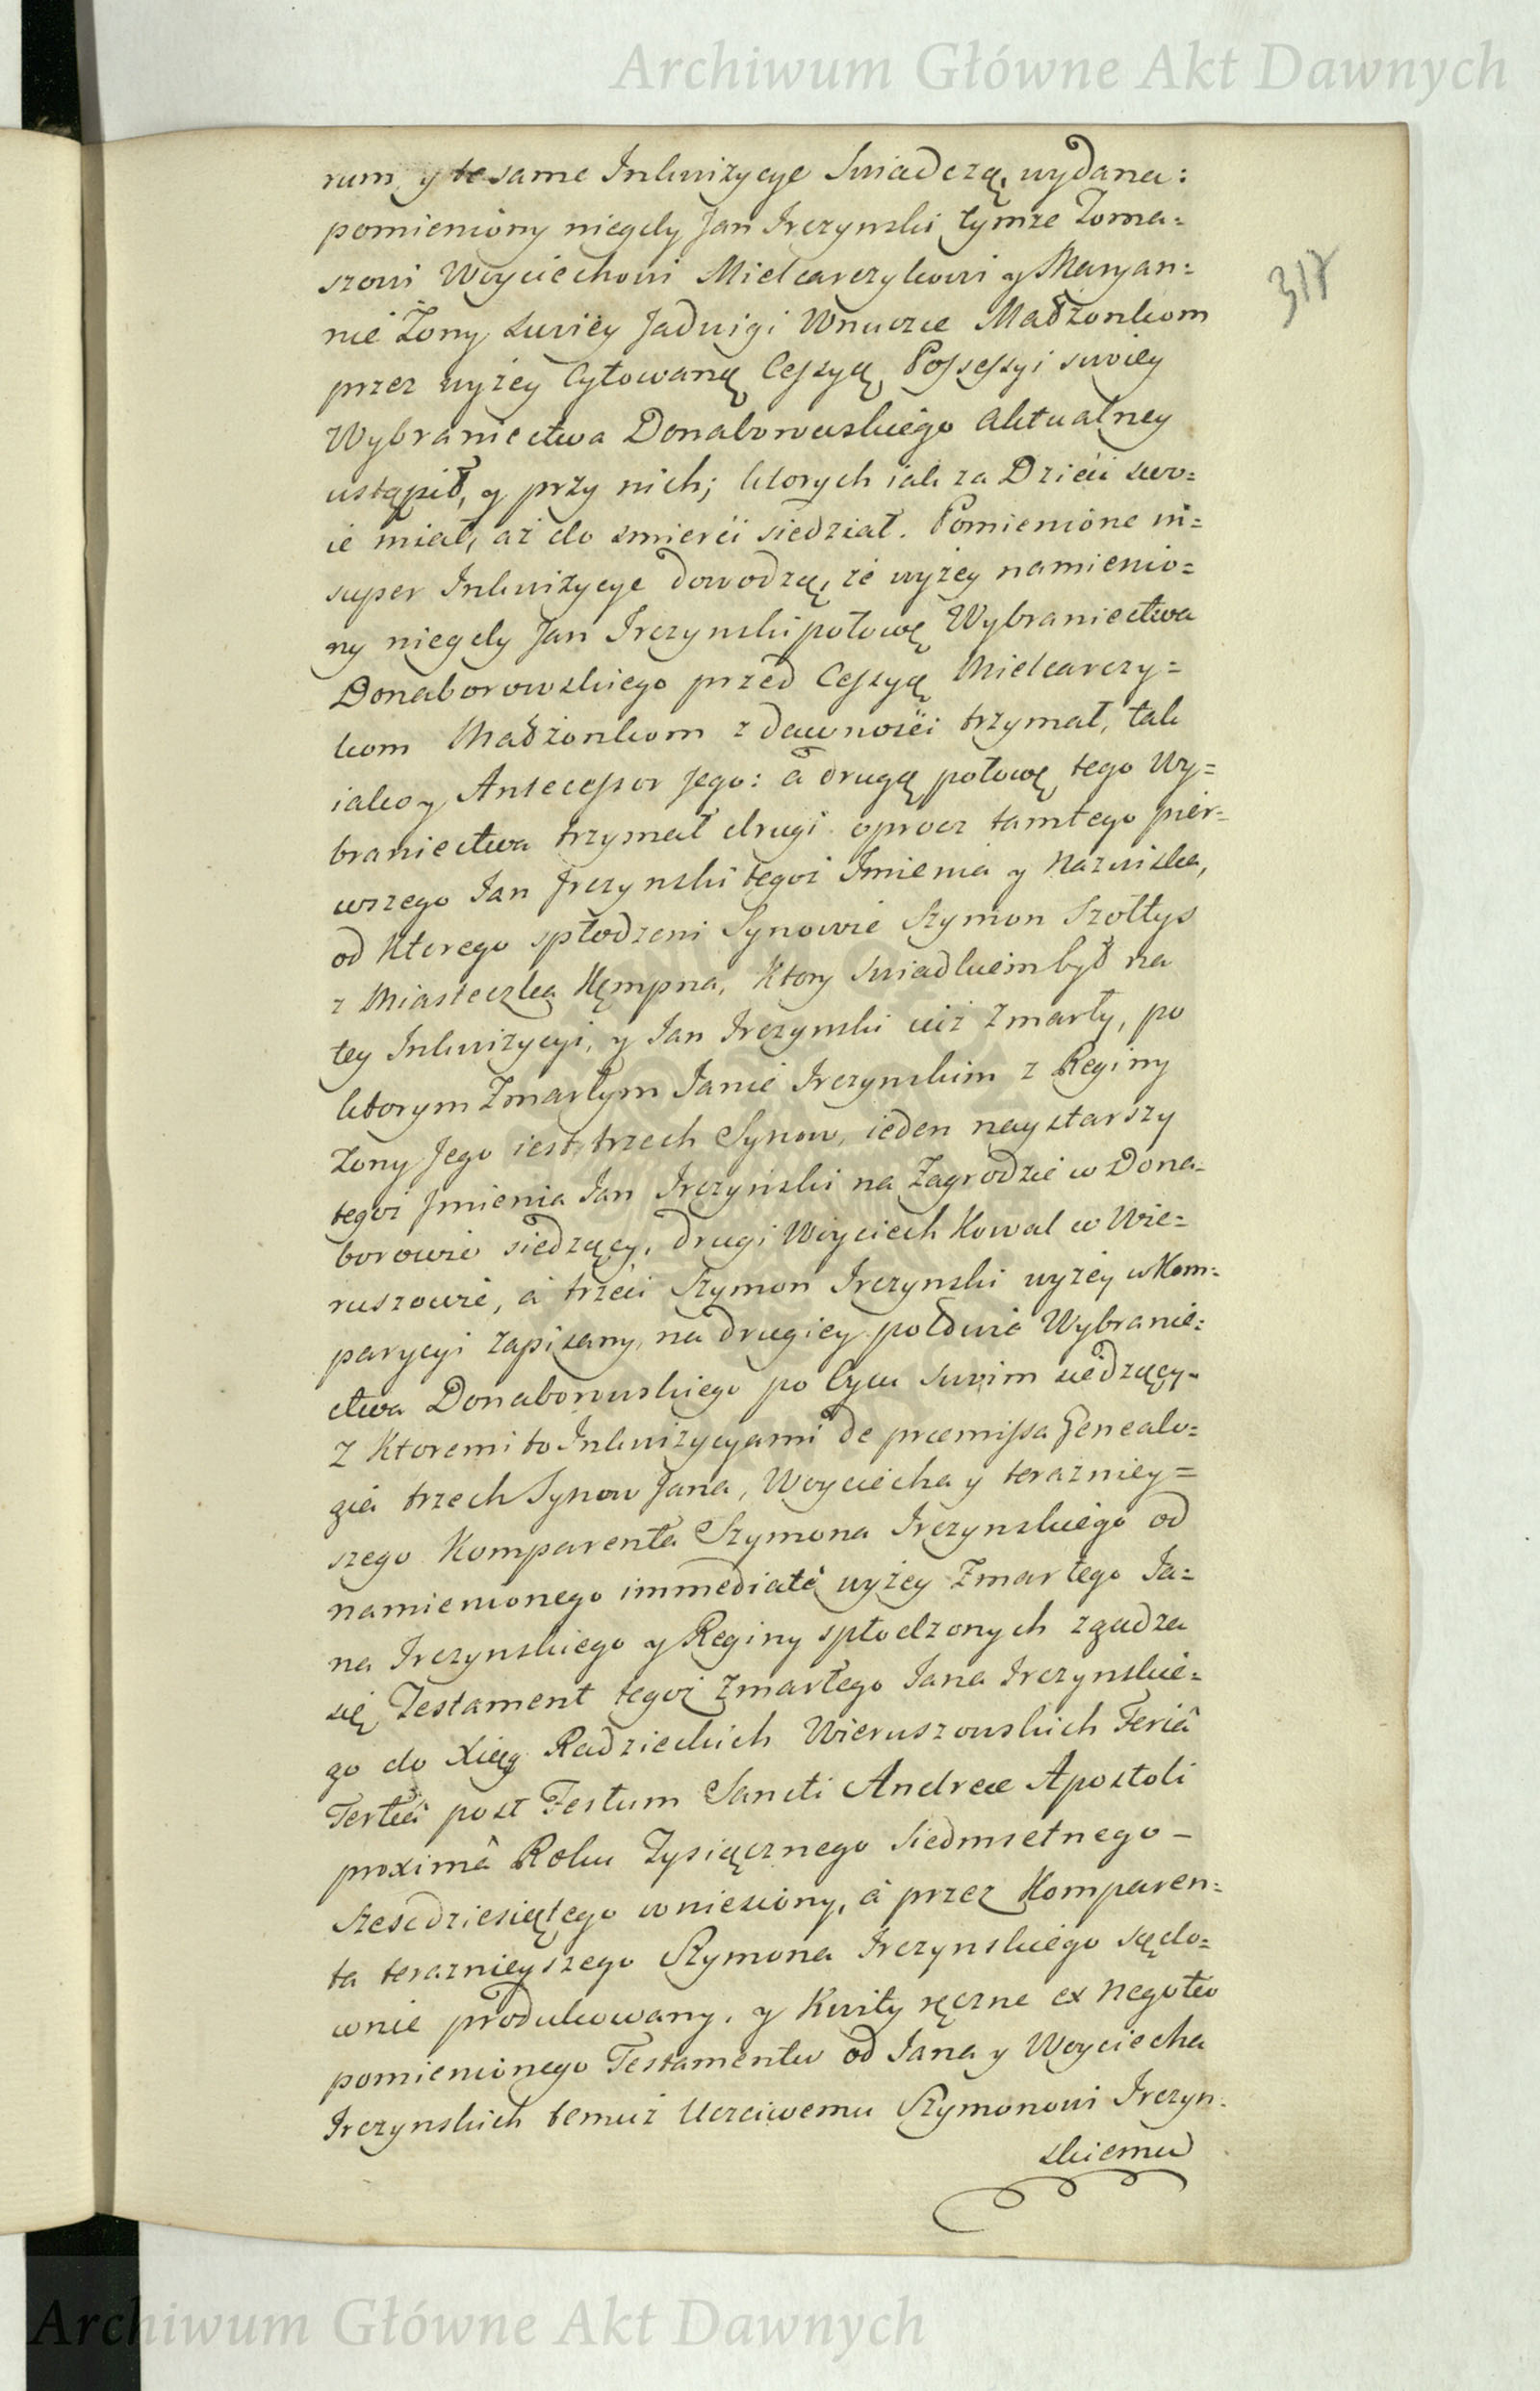 Archiwum Główne Akt Dawnych
rum y te same Inkwizycye Swiadczą, wydana:
pomieniony niegdy Jan Irczynski tymże Toma=
szowi Woyciechowi Mielcarczykowi y Maryan=
nie Zony swiey Jadwigi Wnuczce Małżonkom
przez wyżey Cytowaną Cessyą Possessyi swoiey
Wybraniectwa Donaborowskiego Aktualney
ustąpił, y przy nich; ktorych iak za Dzieci swo=
ie miał, aż do smierci siedział. Pomienione in=
super Inkwizycye dowodzą, że wyżey namienio=
ny niegdy Jan Irczynski połowę Wybraniectwa
Donaborowskiego przed Cessyą Mielcarczy=
kom Małżonkom z dawności trzymał, tak
iako y Antecessor Jego: a drugą połowę tego Wy=
braniectwa trzymał drugi oprocz tamtego pier=
wszego Jan Irczynski tegoż Imienia y Nazwiska,
od Ktorego spłodzeni Synowie Szymon Szołtys
z Miasteczka Kęmpna, Ktory swiadkiem był na
tey Inkwizycyi, y Jan Irczynski iuż zmarły, po
ktorym Zmarłym Janie Irczynskim z Reginy
Zony Jego iest trzech Synow, ieden naystarszy
tegoż Jmienia Jan Irczyński na Zagrodzie w Dona=
borowie siedzący, drugi Woyciech Kowal w Wie=
ruszowie, a trzeci Szymon Irczynski wyżey w Kom=
parycyi zapisany, na drugiey połowie Wybranie=
ctwa Donaborowskiego po Oycu swoim siedzący.
Z Ktoremi to Inkwizycyami de praemissa Genealo=
gia trzech Synow Jana, Woyciecha y terazniey=
szego Komparenta Szymona Irczynskiego od
namienionego immediatè wyżey Zmarłego Ja=
na Irczynskiego y Reginy spłodzonych zgadza
się Testament tegoż Zmarłego Jana Irczynskie=
go do Xiąg Radzieckich Wieruszowskich Feriâ
Tertiâ post Festum Sancti Andreae Apostoli
proximâ Roku Tysiącznego Siedmsetnego –
Szescdziesiątego wniesiony, a przez Komparen=
ta teraznieyszego Szymona Irczynskiego sądo=
wnie produkowany, y Kwity ręczne ex negotio
pomienionego Testamentu od Jana y Woyciecha
Irczynskich temuż Uczciwemu Szymonowi Irczyn=
skiemu
Archiwum Główne Akt Dawnych